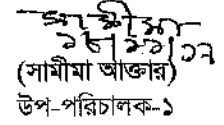 সামীমা
১৮/১১/১৭
(সামীমা আক্তার)
উপ-পরিচালক-১